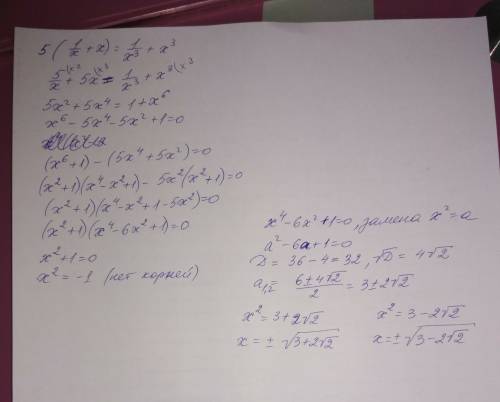 5 ( 1/x + x) = 1/x³ + x³
5/x (x² + 5x (x³ = 1/x³ + x³ (x³
5x² + 5x⁴ = 1 + x⁶
x⁶ - 5x⁴ - 5x² + 1 = 0
(x⁶ + 1) - (5x⁴ + 5x²) = 0
(x² + 1)(x⁴ - x² + 1) - 5x²(x² + 1) = 0
(x² + 1)(x⁴ - x² + 1 - 5x²) = 0
(x² + 1)(x⁴ - 6x² + 1) = 0
x² + 1 = 0
x² = -1 (нет корней)
x⁴ - 6x² + 1 = 0, замена x² = a
a² - 6a + 1 = 0
D = 36 - 4 = 32, √D = 4√2
a₁,₂ = (6 ± 4√2)/2 = 3 ± 2√2
x² = 3 + 2√2 x² = 3 - 2√2
x = ± √(3 + 2√2) x = ± √(3 - 2√2)